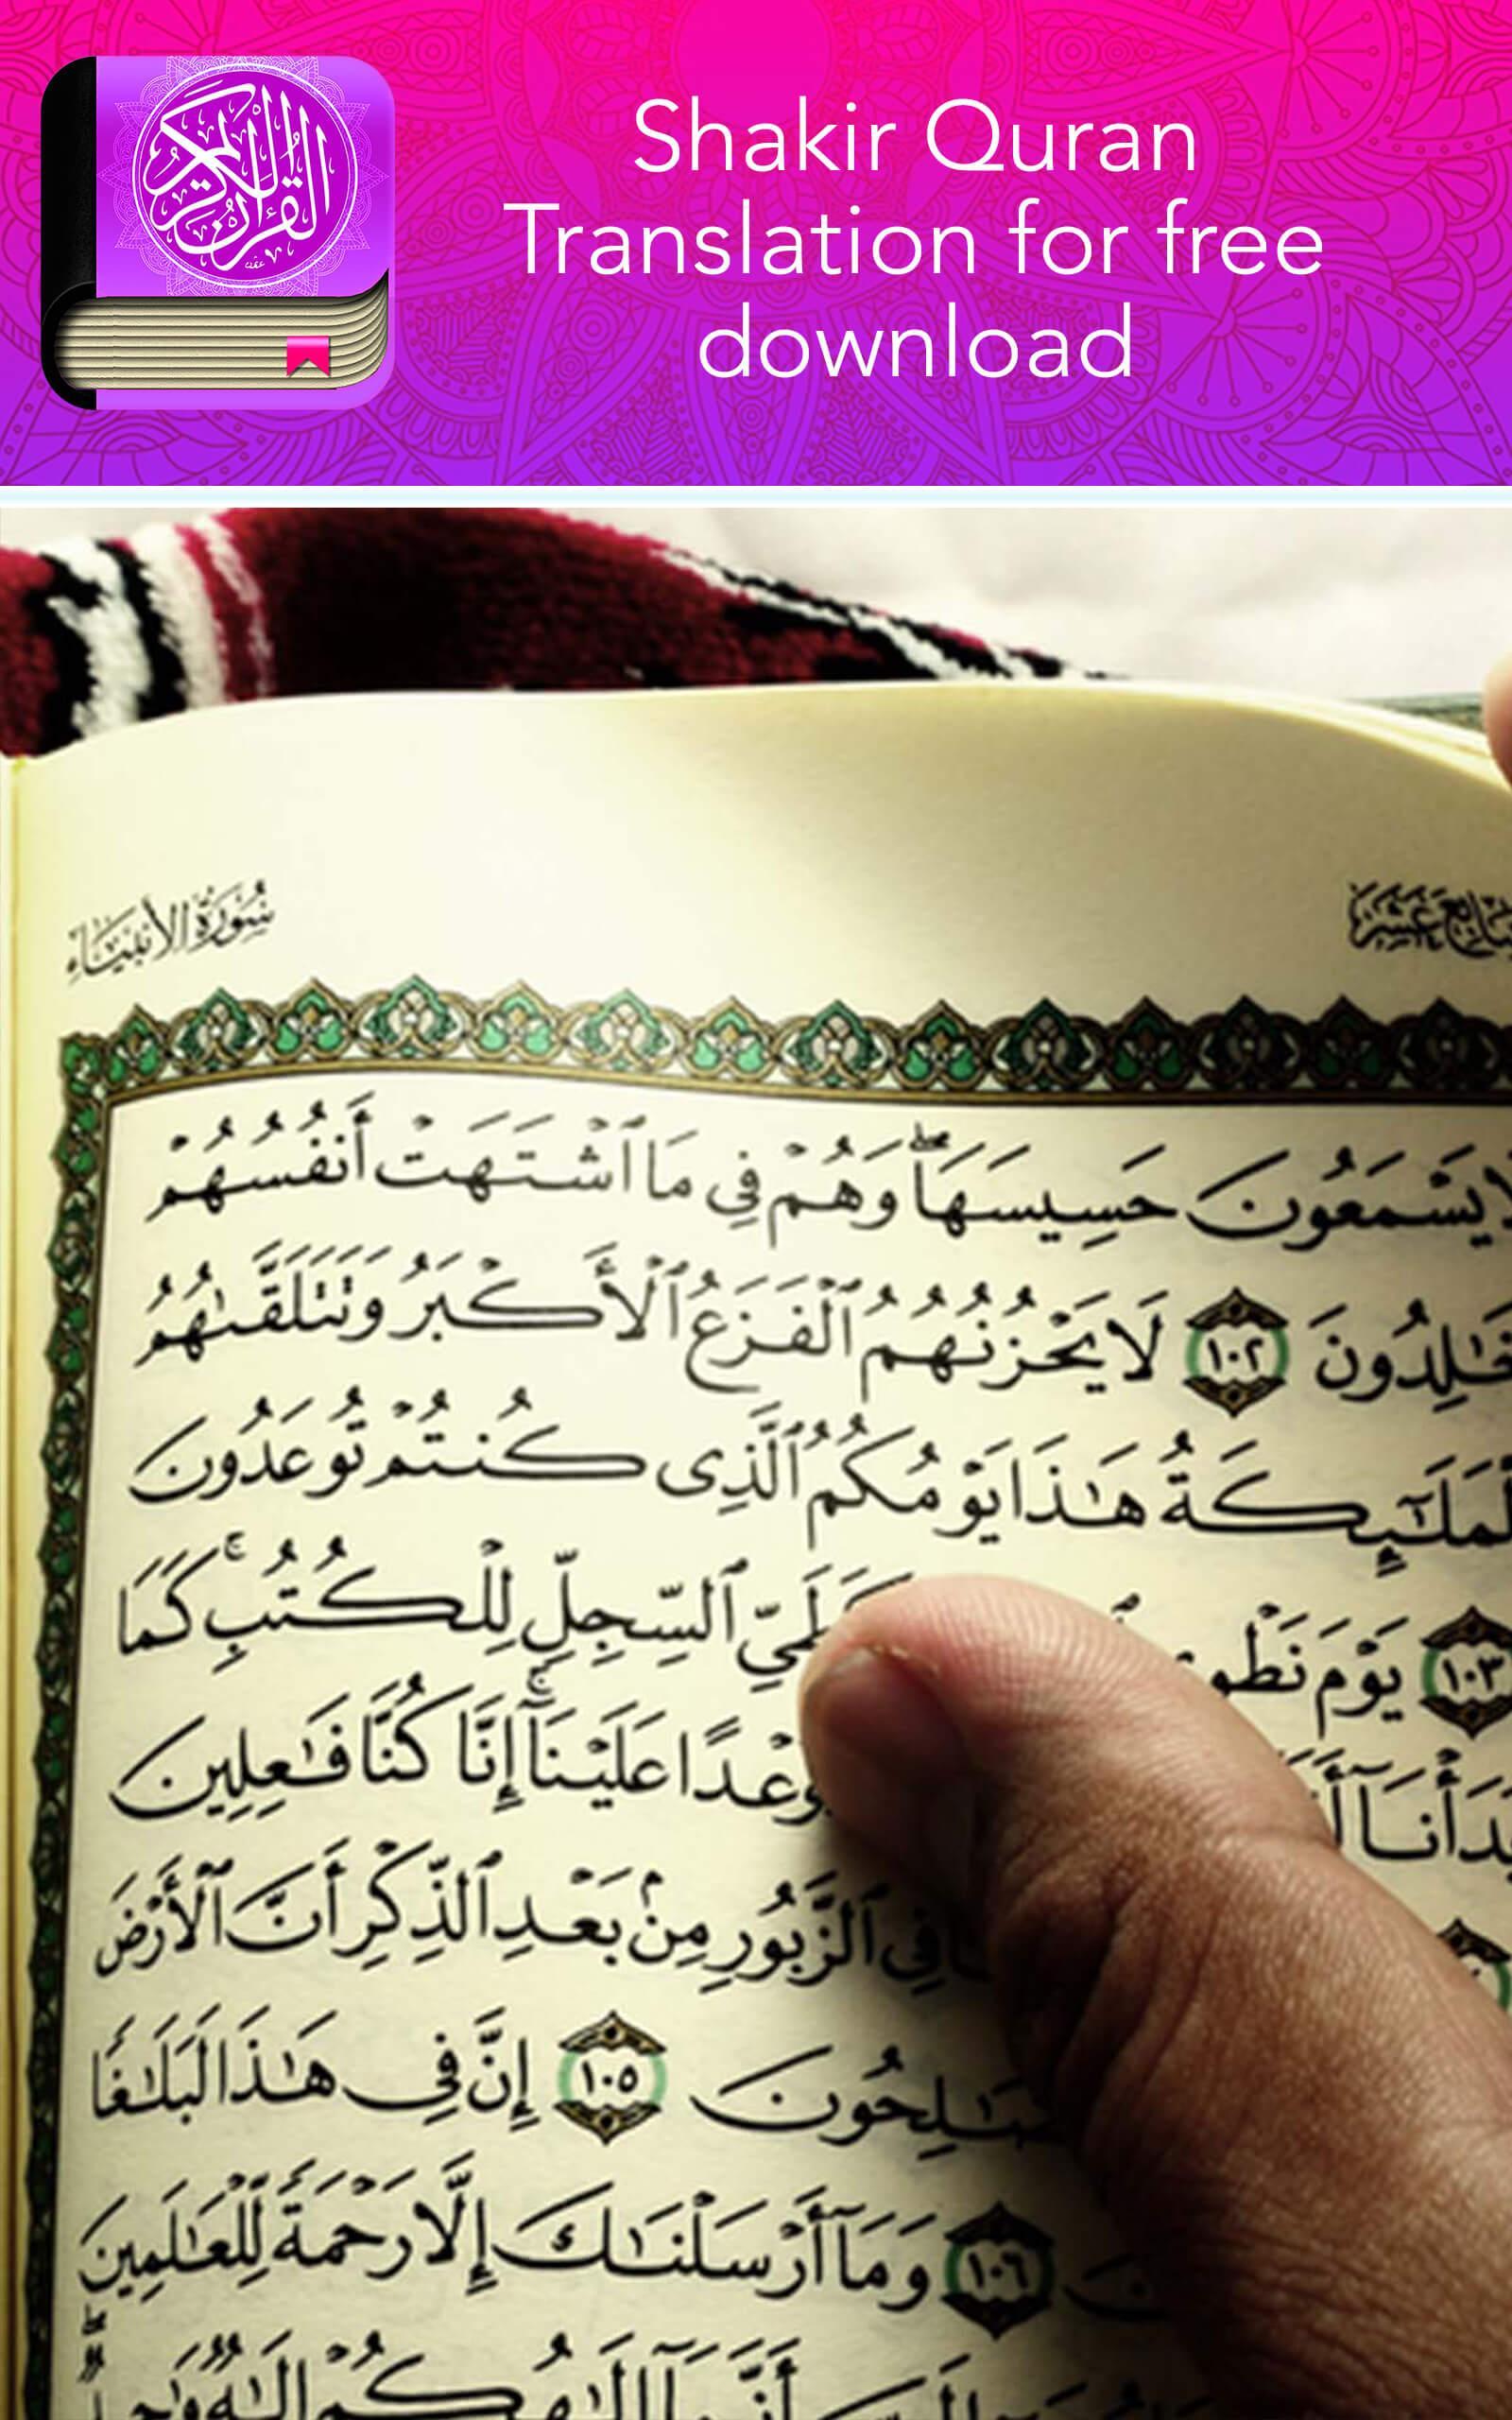 القرآن الكريم
Shakir Quran
Translation for free
download
سُورَةُ الأَنبِيَاء
عَشَرَ
لَا يَسْمَعُونَ حَسِيسَهَا ۖ وَهُمْ فِى مَا ٱشْتَهَتْ أَنفُسُهُمْ
خَٰلِدُونَ ١٠٢ لَا يَحْزُنُهُمُ ٱلْفَزَعُ ٱلْأَكْبَرُ وَتَتَلَقَّىٰهُمُ
ٱلْمَلَٰٓئِكَةُ هَٰذَا يَوْمُكُمُ ٱلَّذِى كُنتُمْ تُوعَدُونَ
١٠٣ يَوْمَ نَطْوِى كَطَىِّ ٱلسِّجِلِّ لِلْكُتُبِ ۚ كَمَا
بَدَأْنَآ وَعْدًا عَلَيْنَآ ۚ إِنَّا كُنَّا فَٰعِلِينَ
فِى ٱلزَّبُورِ مِنۢ بَعْدِ ٱلذِّكْرِ أَنَّ ٱلْأَرْضَ
١٠٥ إِنَّ فِى هَٰذَا لَبَلَٰغًا
١٠٦ وَمَآ أَرْسَلْنَٰكَ إِلَّا رَحْمَةً لِّلْعَٰلَمِينَ
أَنَّمَآ إِلَٰهُكُمْ إِلَٰهٌ وَٰحِدٌ ۖ